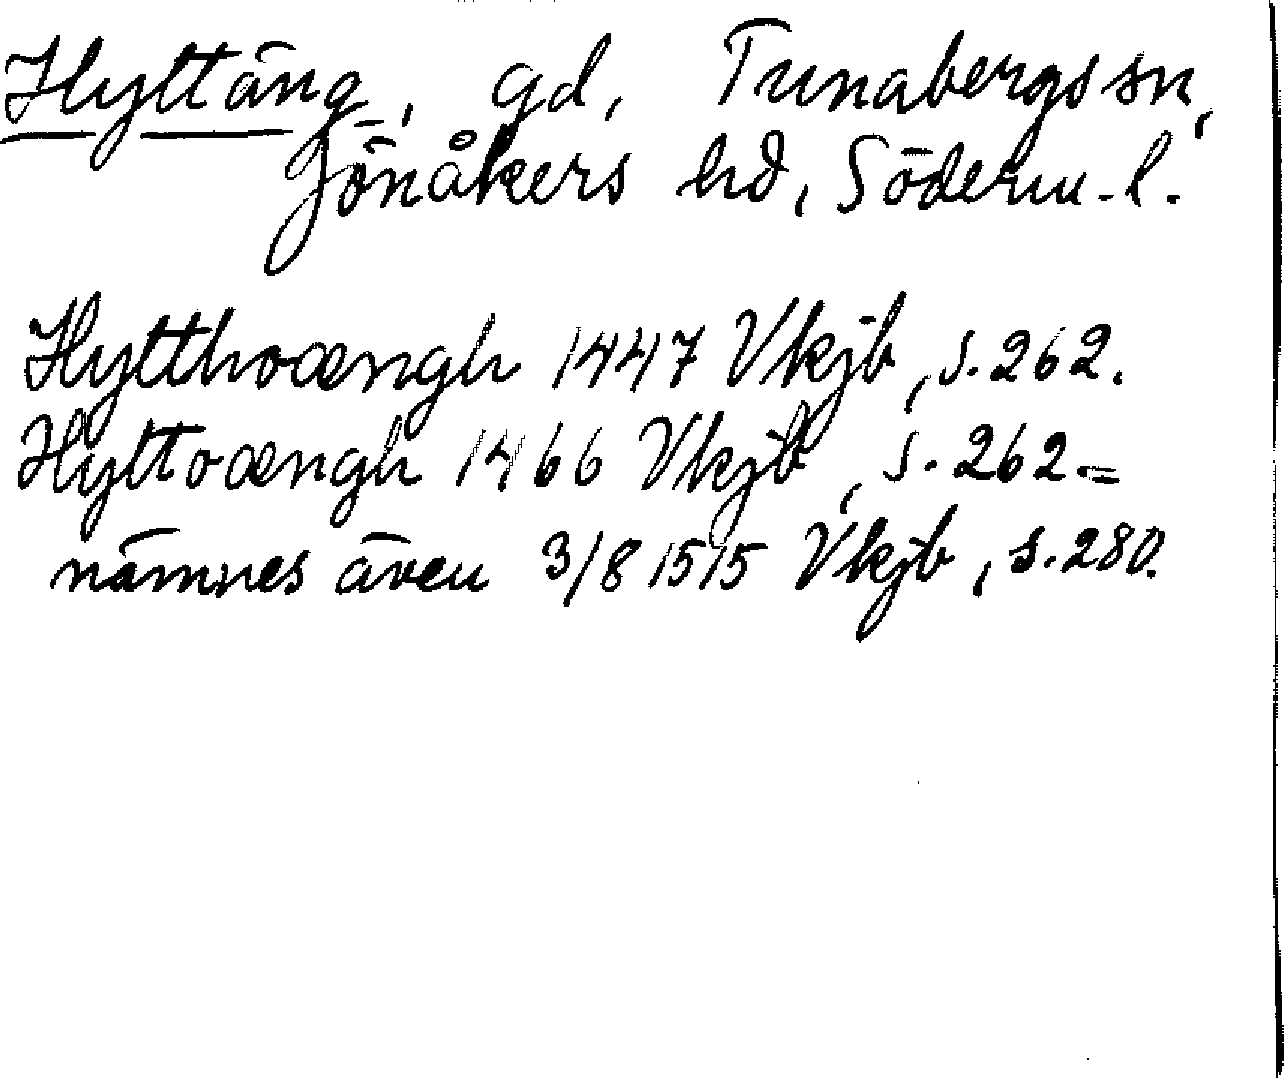 Hyttäng, gd, Tunabergs sn,
Jönåkers hd, Söderm. l.
Hytthoængh 1447 Vkjb, s. 262.
Hyttoængh 1466 Vkjb, s. 262. =
nämnes även 3/8 1515 Vkjb, s. 280.